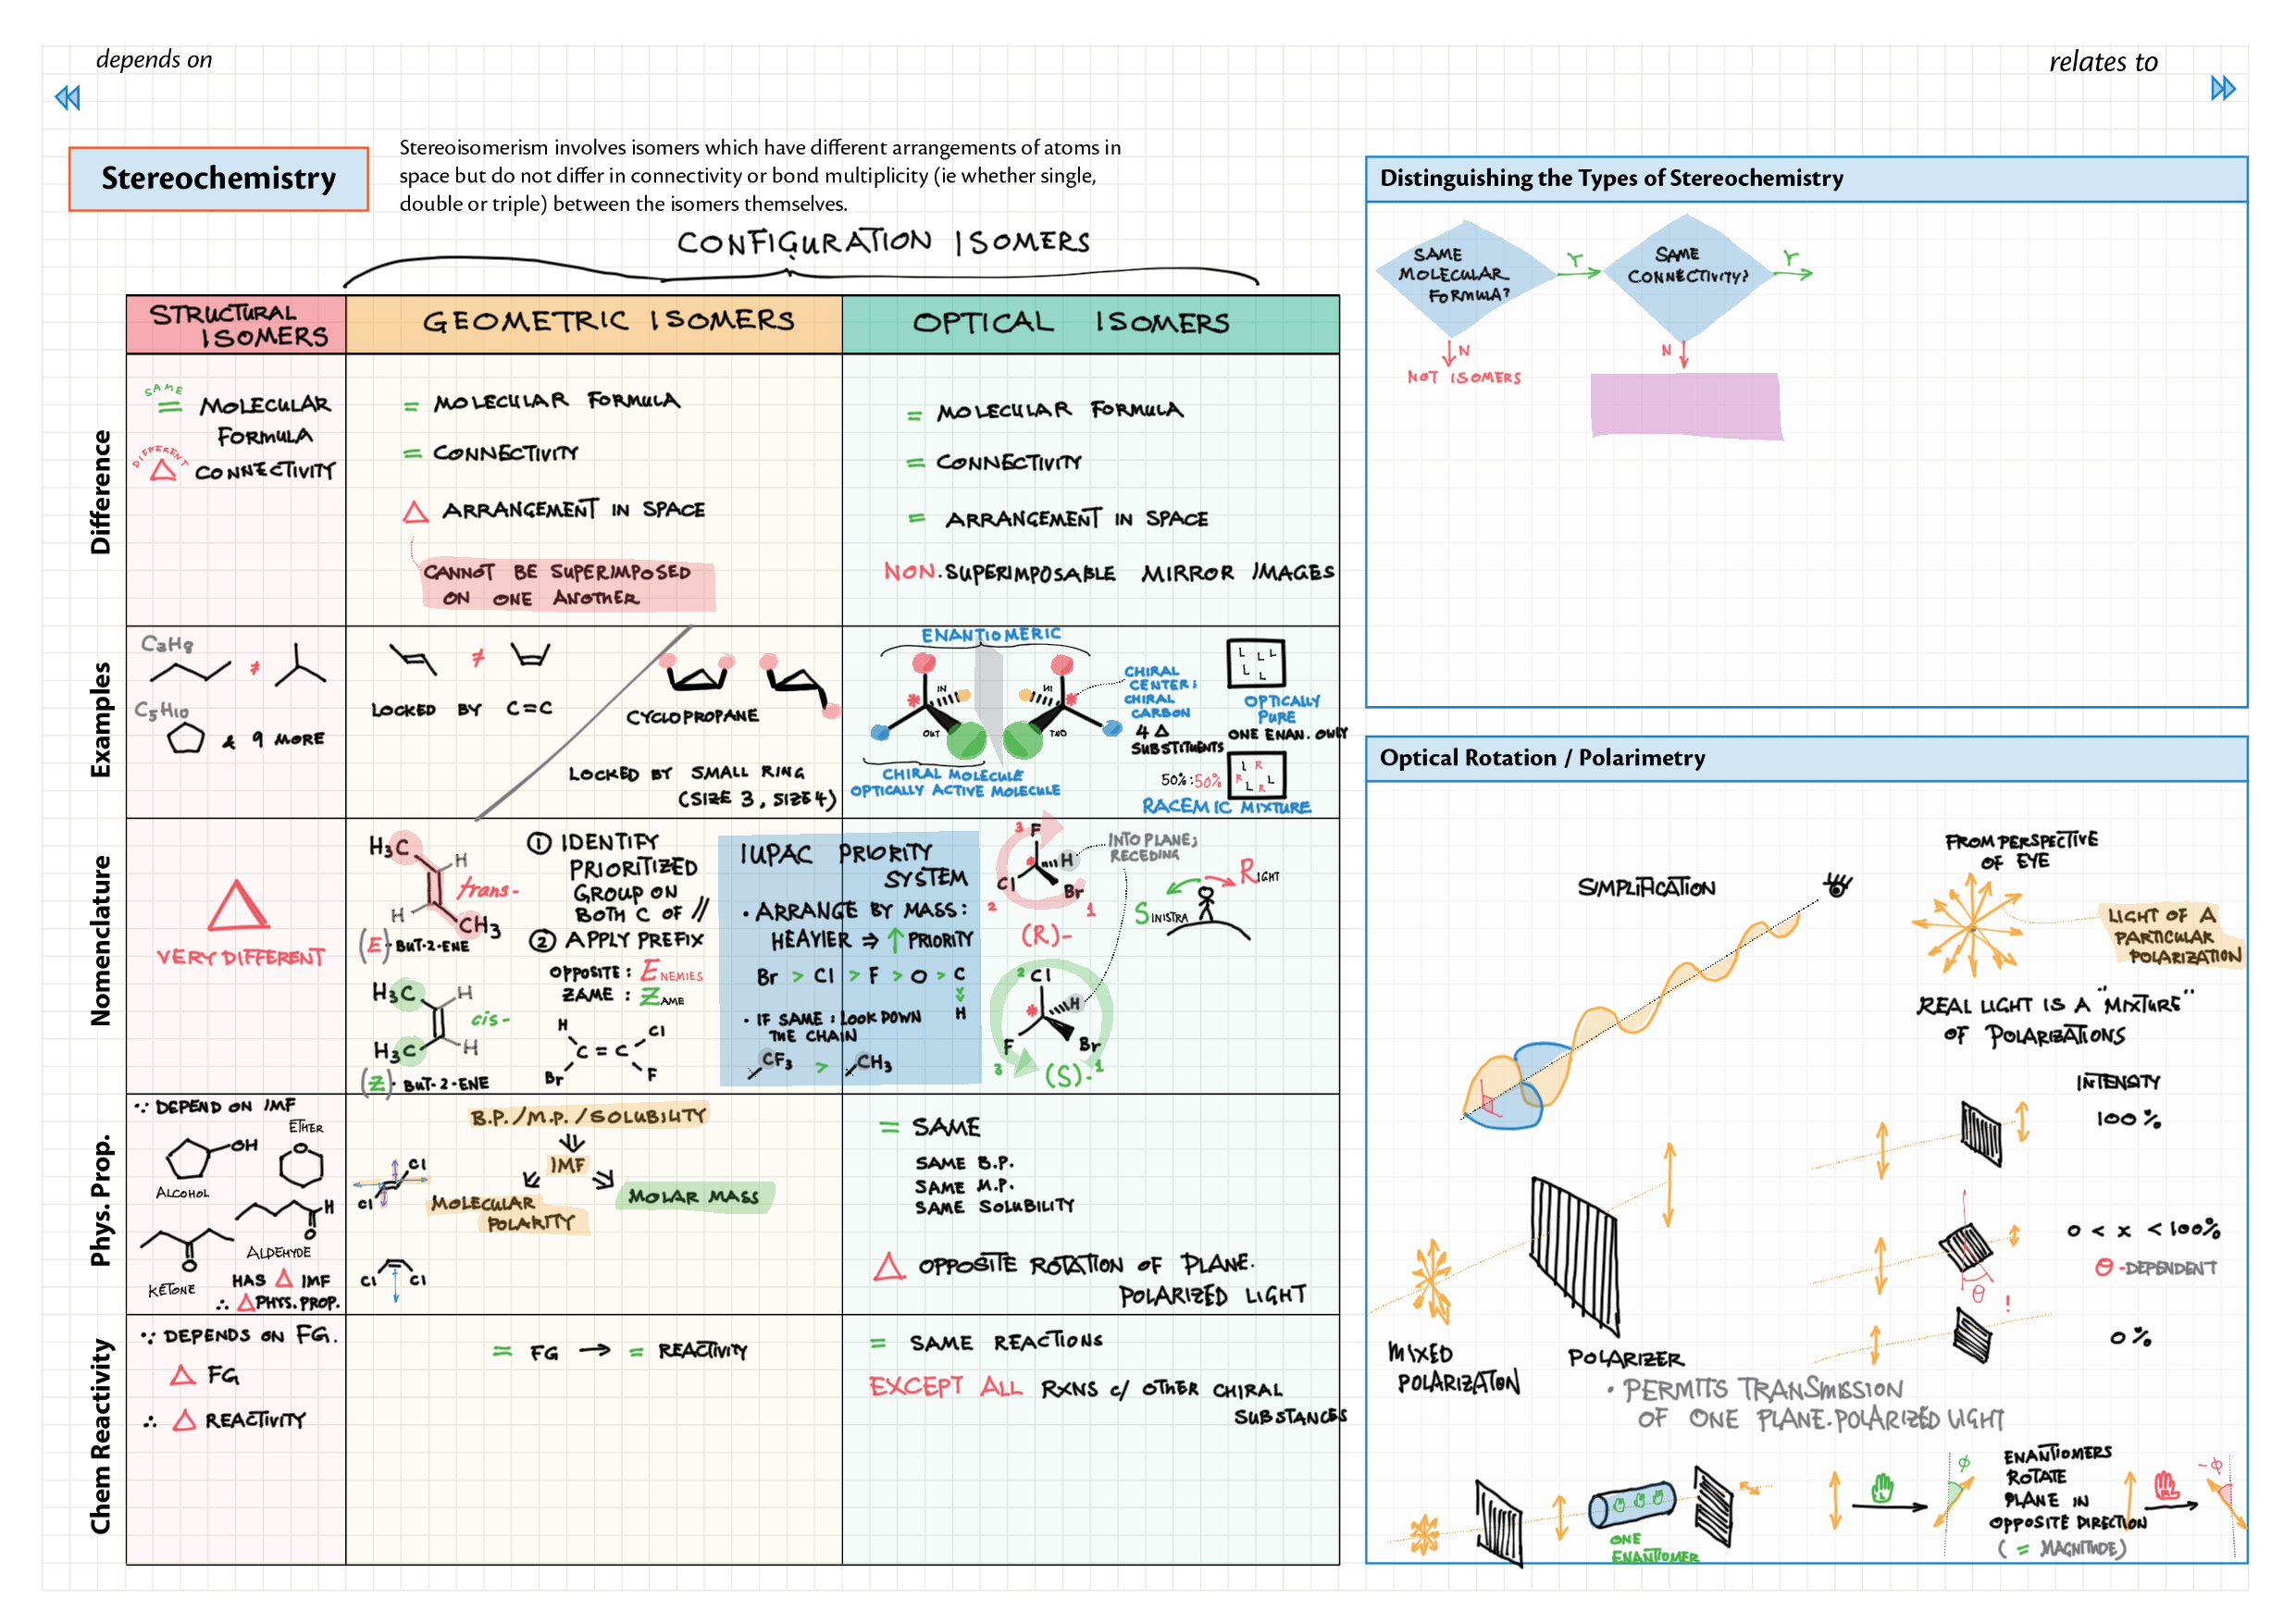 depends on
relates to
Stereochemistry
Stereoisomerism involves isomers which have different arrangements of atoms in
space but do not differ in connectivity or bond multiplicity (ie whether single,
double or triple) between the isomers themselves.
CONFIGURATION ISOMERS
STRUCTURAL
ISOMERS
GEOMETRIC ISOMERS
OPTICAL ISOMERS
Difference
SAME
= MOLECULAR
FORMULA
DIFFERENT
△ CONNECTIVITY
= MOLECULAR FORMULA
= CONNECTIVITY
△ ARRANGEMENT IN SPACE
CANNOT BE SUPERIMPOSED
ON ONE ANOTHER
= MOLECULAR FORMULA
= CONNECTIVITY
= ARRANGEMENT IN SPACE
NON-SUPERIMPOSABLE MIRROR IMAGES
Examples
C3H8
≠
C5H10
& 9 MORE
≠
LOCKED BY C=C
CYCLOPROPANE
LOCKED BY SMALL RING
(SIZE 3, SIZE 4)
ENANTIOMERIC
IN
IN
OUT
OUT
CHIRAL MOLECULE
OPTICALLY ACTIVE MOLECULE
CHIRAL
CENTER;
CHIRAL
CARBON
4 △
SUBSTITUENTS
L L L
L L
OPTICALLY
PURE
ONE ENAN. ONLY
50%:50%
L R
R L
L R
RACEMIC MIXTURE
Nomenclature
△
VERY DIFFERENT
H3C
H
trans-
H
CH3
(E)-BUT-2-ENE
H3C
H
cis-
H3C
H
(Z)-BUT-2-ENE
① IDENTIFY
PRIORITIZED
GROUP ON
BOTH C OF //
② APPLY PREFIX
OPPOSITE : ENEMIES
ZAME : ZAME
H
Cl
C=C
Br
F
IUPAC PRIORITY
SYSTEM
• ARRANGE BY MASS:
HEAVIER ⇒ ↑ PRIORITY
Br > Cl > F > O > C
H
• IF SAME : LOOK DOWN
THE CHAIN
CF3 > CH3
3 F
H
Cl
Br
2
1
(R)-
INTO PLANE;
RECEDING
RIGHT
SINISTRA
2 Cl
H
F
Br
3
(S)-
1
Phys. Prop.
∵ DEPEND ON IMF
OH
ALCOHOL
ETHER
O
H
O
ALDEHYDE
O
KETONE
HAS △ IMF
∴ △ PHYS. PROP.
B.P./M.P./SOLUBILITY
IMF
MOLECULAR
POLARITY
MOLAR MASS
Cl
Cl
Cl
Cl
= SAME
SAME B.P.
SAME M.P.
SAME SOLUBILITY
△ OPPOSITE ROTATION OF PLANE-
POLARIZED LIGHT
Chem Reactivity
∵ DEPENDS ON FG.
△ FG
∴ △ REACTIVITY
= FG → = REACTIVITY
= SAME REACTIONS
EXCEPT ALL RXNS c/ OTHER CHIRAL
SUBSTANCES
Distinguishing the Types of Stereochemistry
SAME
MOLECULAR
FORMULA?
Y
SAME
CONNECTIVITY?
Y
N
NOT ISOMERS
N
Optical Rotation / Polarimetry
SIMPLIFICATION
FROM PERSPECTIVE
OF EYE
LIGHT OF A
PARTICULAR
POLARIZATION
REAL LIGHT IS A "MIXTURE"
OF POLARIZATIONS
INTENSITY
100%
0 < x < 100%
θ-DEPENDENT
θ !
0%
MIXED
POLARIZATION
POLARIZER
• PERMITS TRANSMISSION
OF ONE PLANE-POLARIZED LIGHT
ONE
ENANTIOMER
φ
ENANTIOMERS
ROTATE
PLANE IN
OPPOSITE DIRECTION
( = MAGNITUDE)
-φ